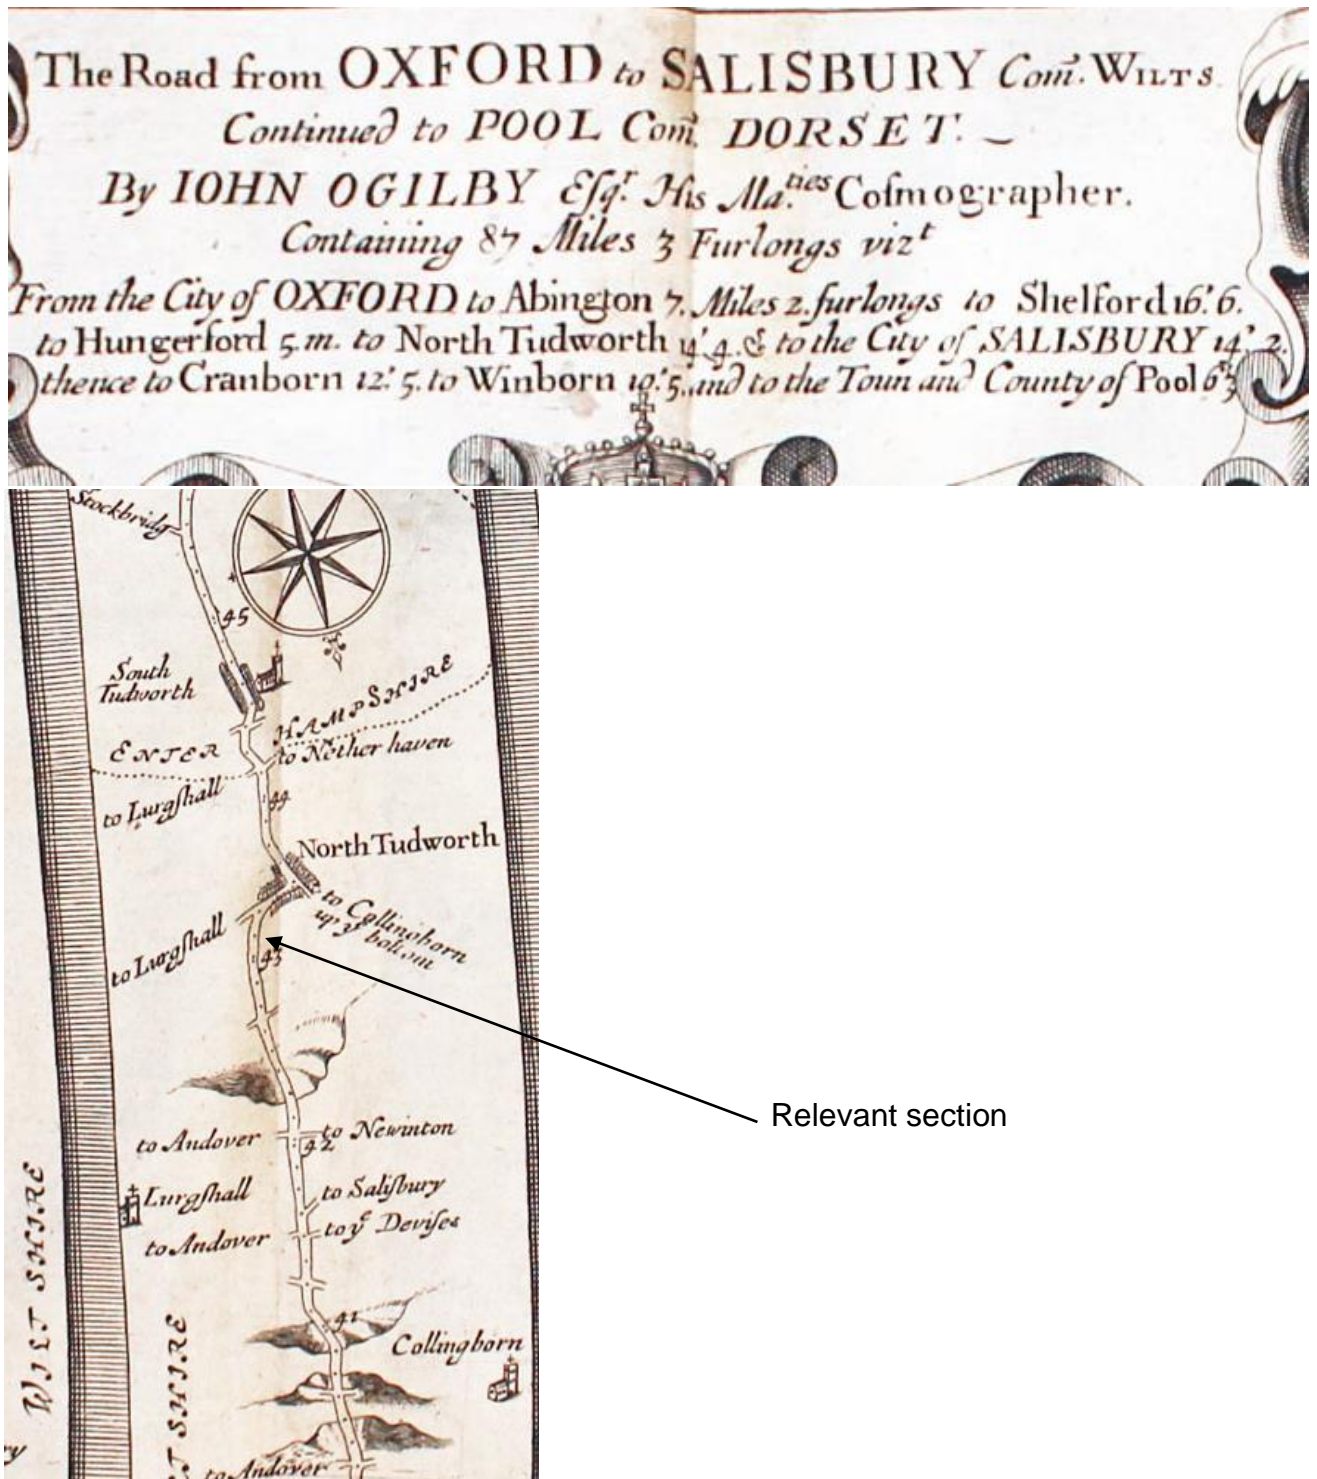 The Road from OXFORD to SALISBURY Com̃. WILTS.
Continued to POOL Com̃. DORSET.
By IOHN OGILBY Eſqr. His Ma.ties Coſmographer.
Containing 87 Miles 3 Furlongs vizt
From the City of OXFORD to Abington 7. Miles 2. furlongs to Shelford 16.' 6.
to Hungerford 5. m. to North Tudworth 14.' 4. & to the City of SALISBURY 14.' 2.
thence to Cranborn 12.' 5. to Winborn 10.' 5. and to the Toun and County of Pool 6.' 3
Stockbridg
45
South
Tudworth
ENTER HAMPSHIRE
to Nether haven
to Lurgſhall
44
North Tudworth
to Collingborn
up ye
bottom
to Lurgſhall
43
Relevant section
to Andover
42
to Newinton
Lurgſhall
to Saliſbury
to Andover
to ye Deviſes
WILT SHIRE
41
Collingborn
T SHIRE
to Andover